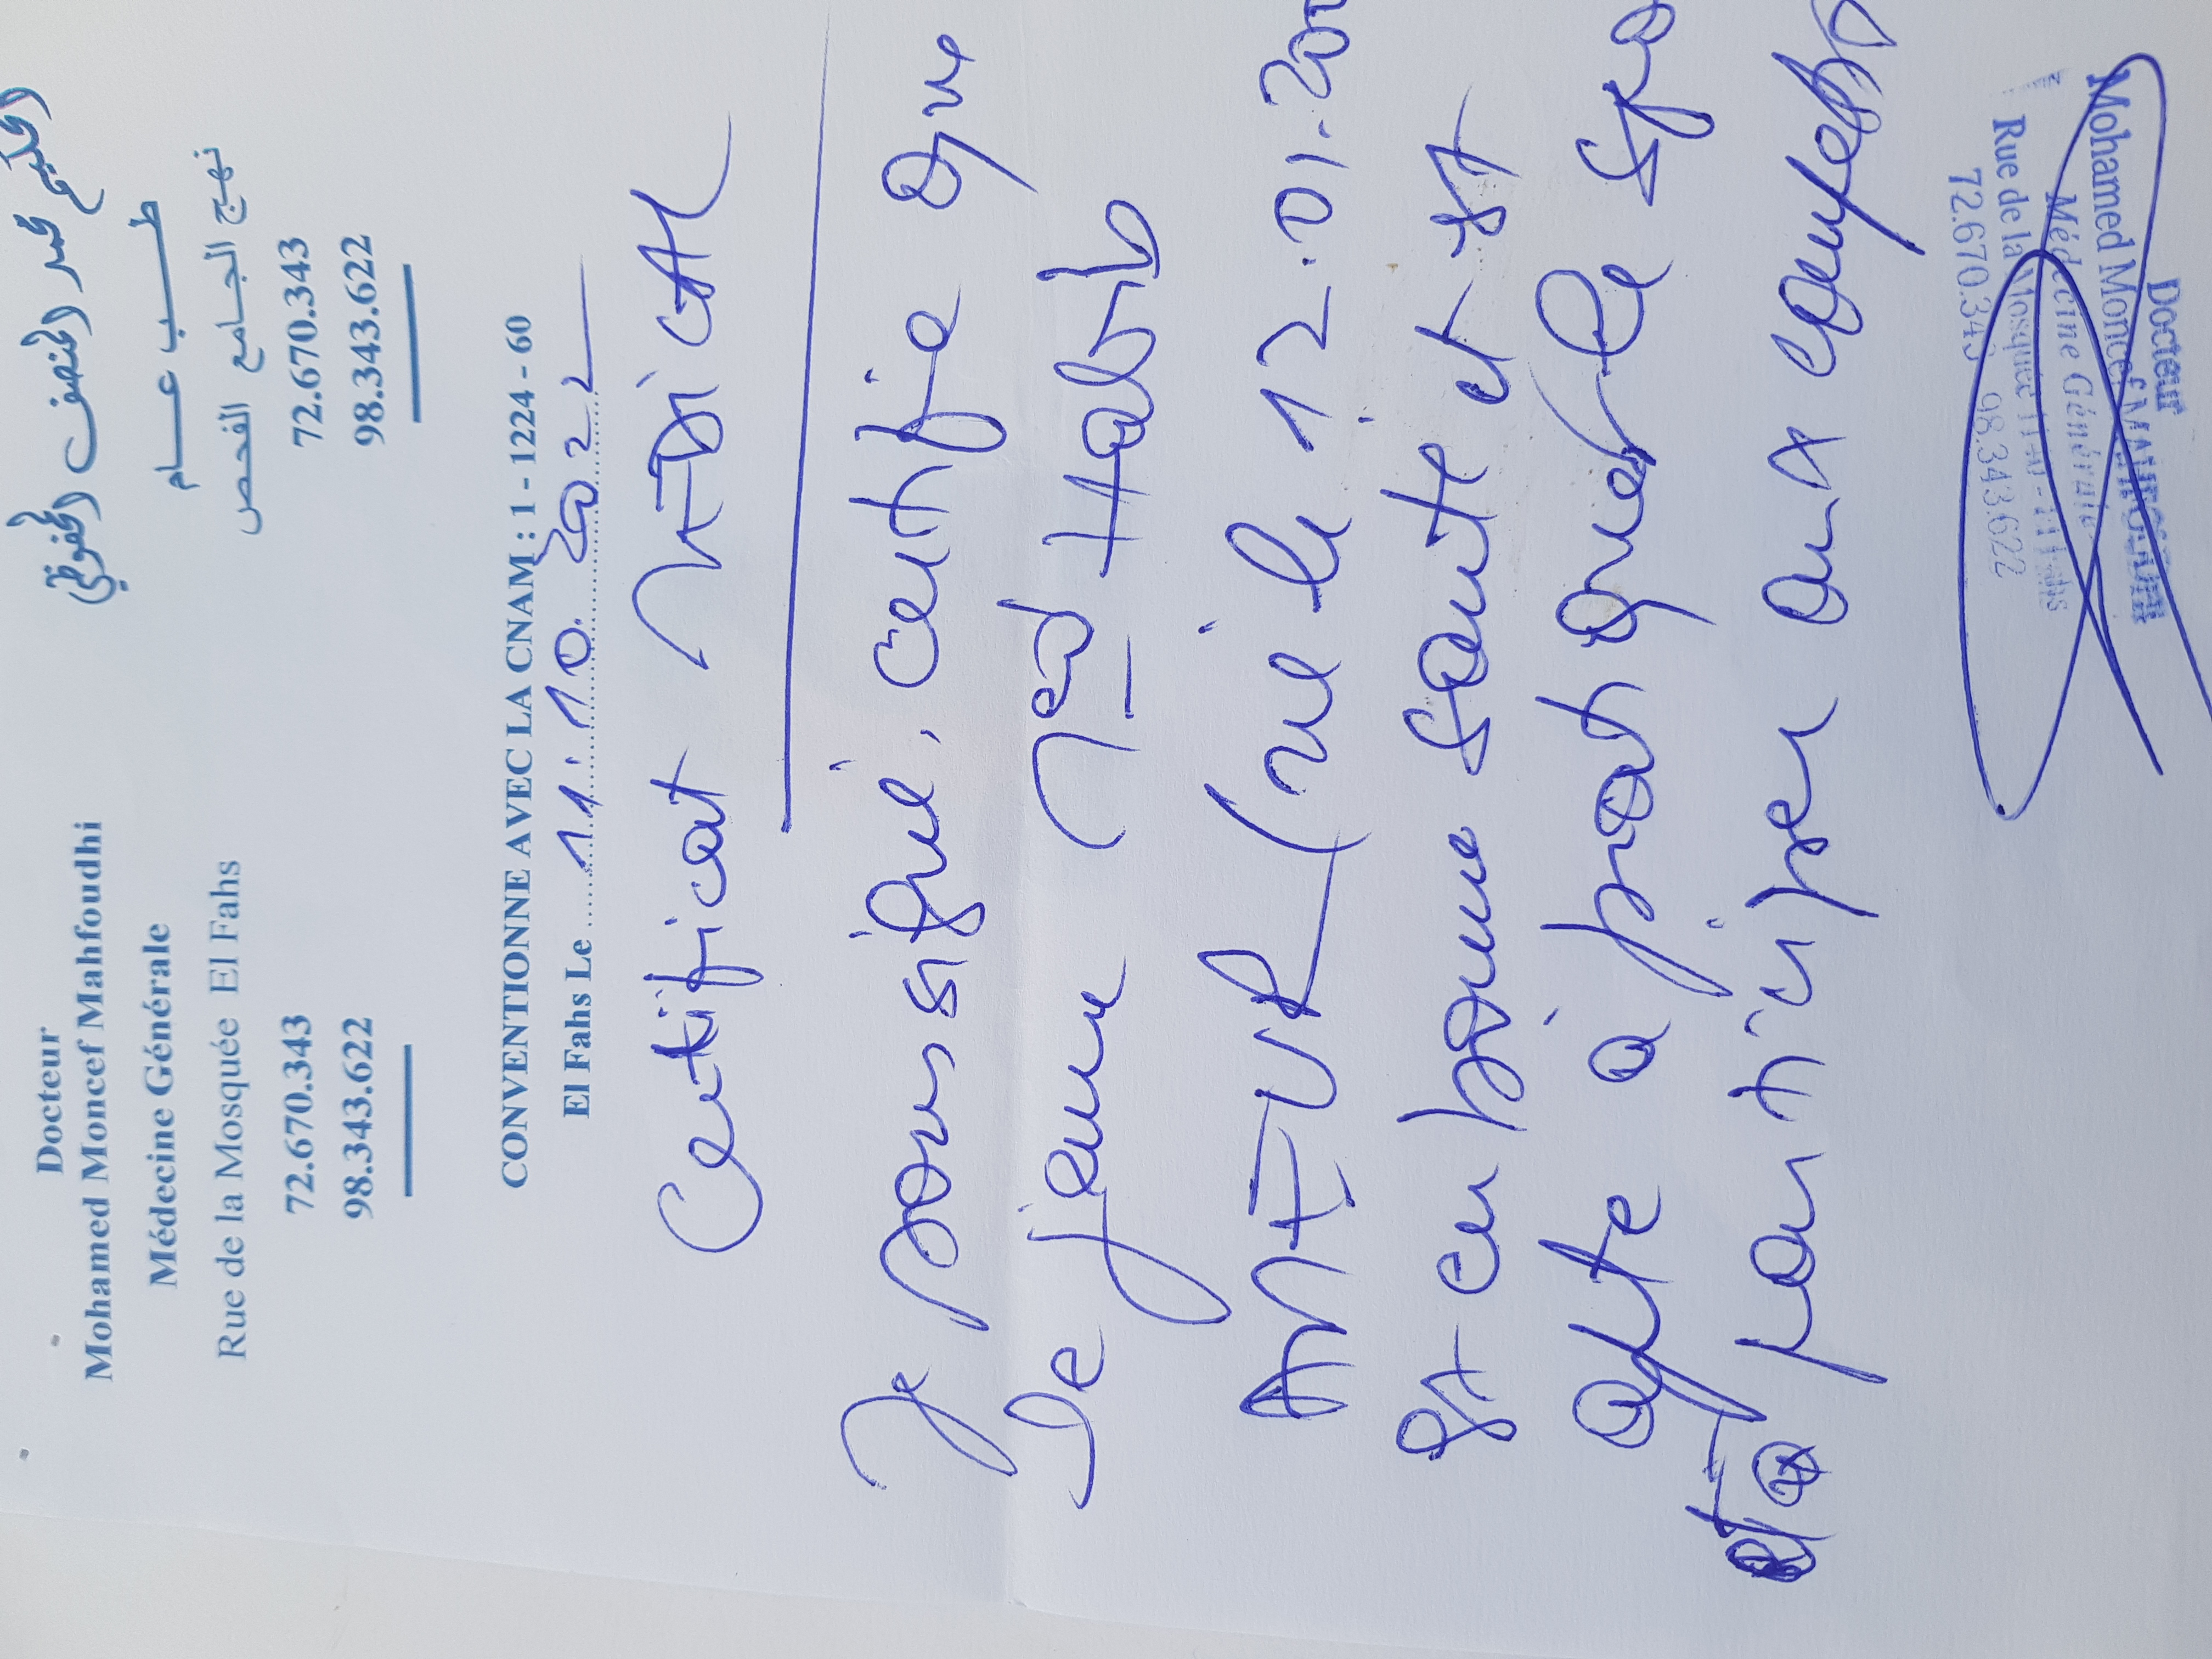 Docteur
Mohamed Moncef Mahfoudhi
Médecine Générale
Rue de la Mosquée El Fahs
72.670.343
98.343.622
الحكيم محمد المنصف المحفوظي
طب عام
نهج الجامع الفحص
72.670.343
98.343.622
CONVENTIONNE AVEC LA CNAM : 1 - 1224 - 60
El Fahs Le 11.10.2022
Certificat MEDICAL
Je soussigné, certifie que
le jeune Med Habib
(né le 12.01.20
est en bonne santé et est
apte à pratiquer le
et à participer aux
Docteur
Mohamed Moncef MAHFOUDHI
Médecine Générale
Rue de la Mosquée 1140 - El Fahs
72.670.343 98.343.622